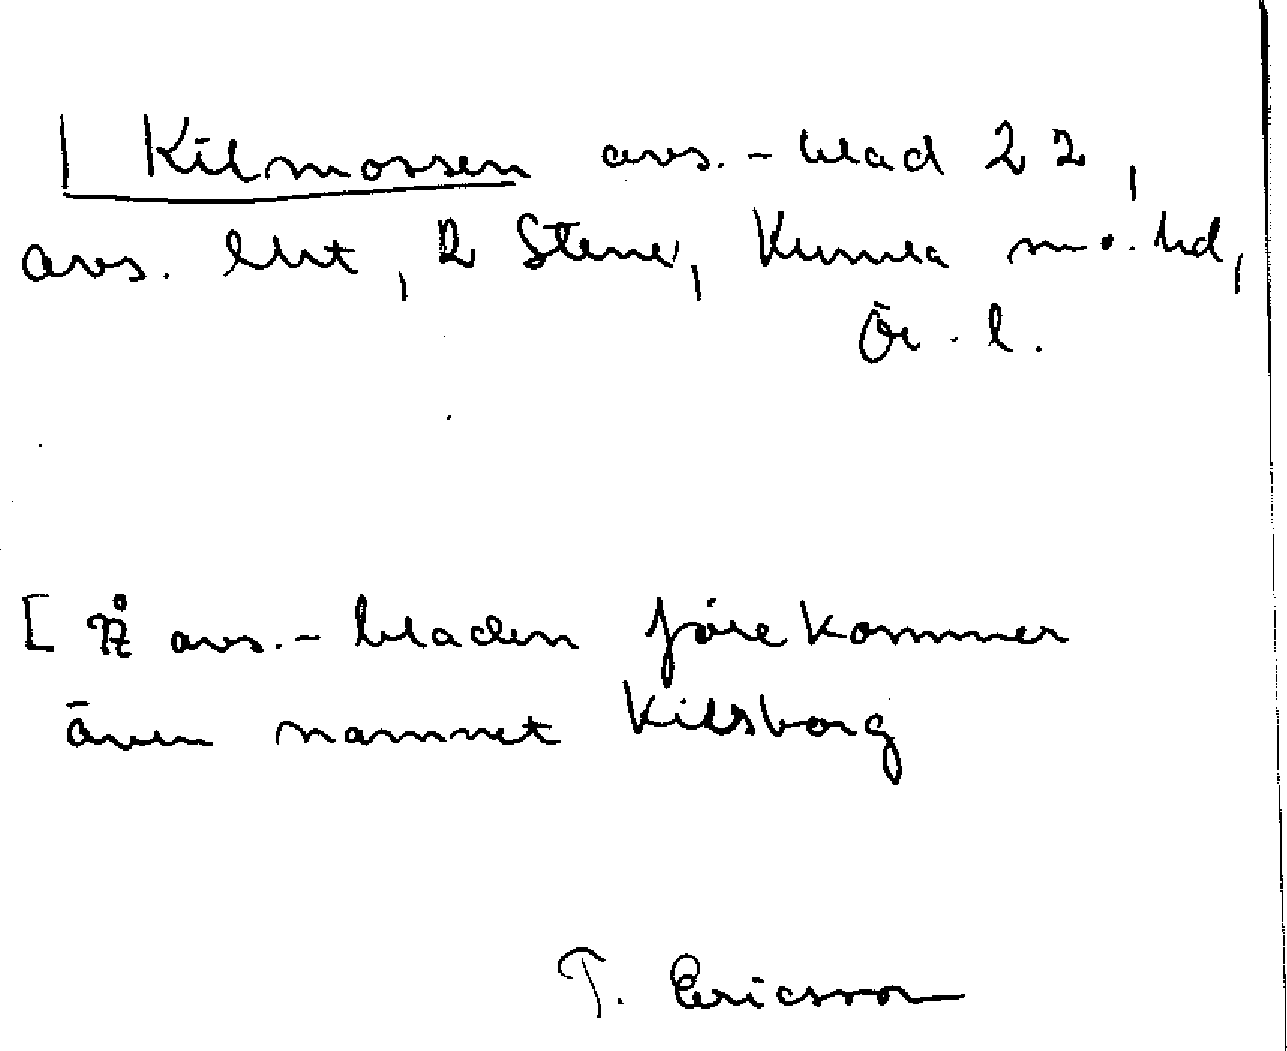 Kilmossen avs.-blad 22,
avs. lht, R Stene, Kumla sn o. hd,
Ör. l.
[ På avs.-bladen förekommer
även namnet Kilsborg
T. Ericsson